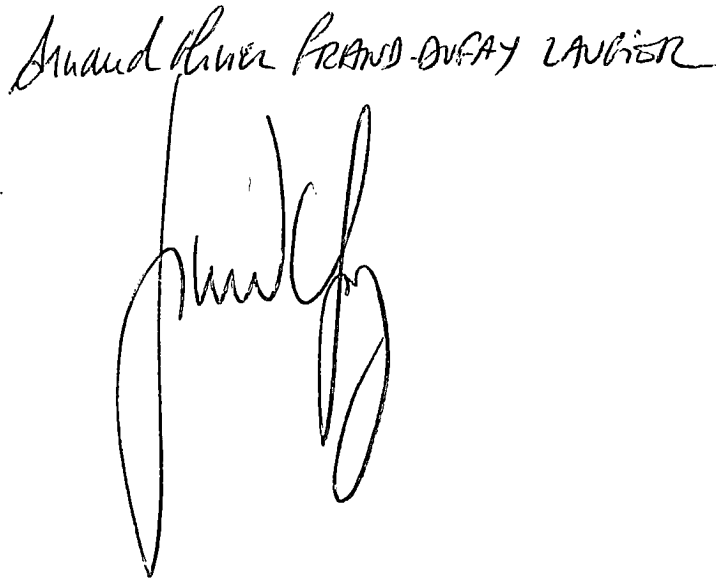 Arnaud Olivier FRAND-DUFAY LAUGIER